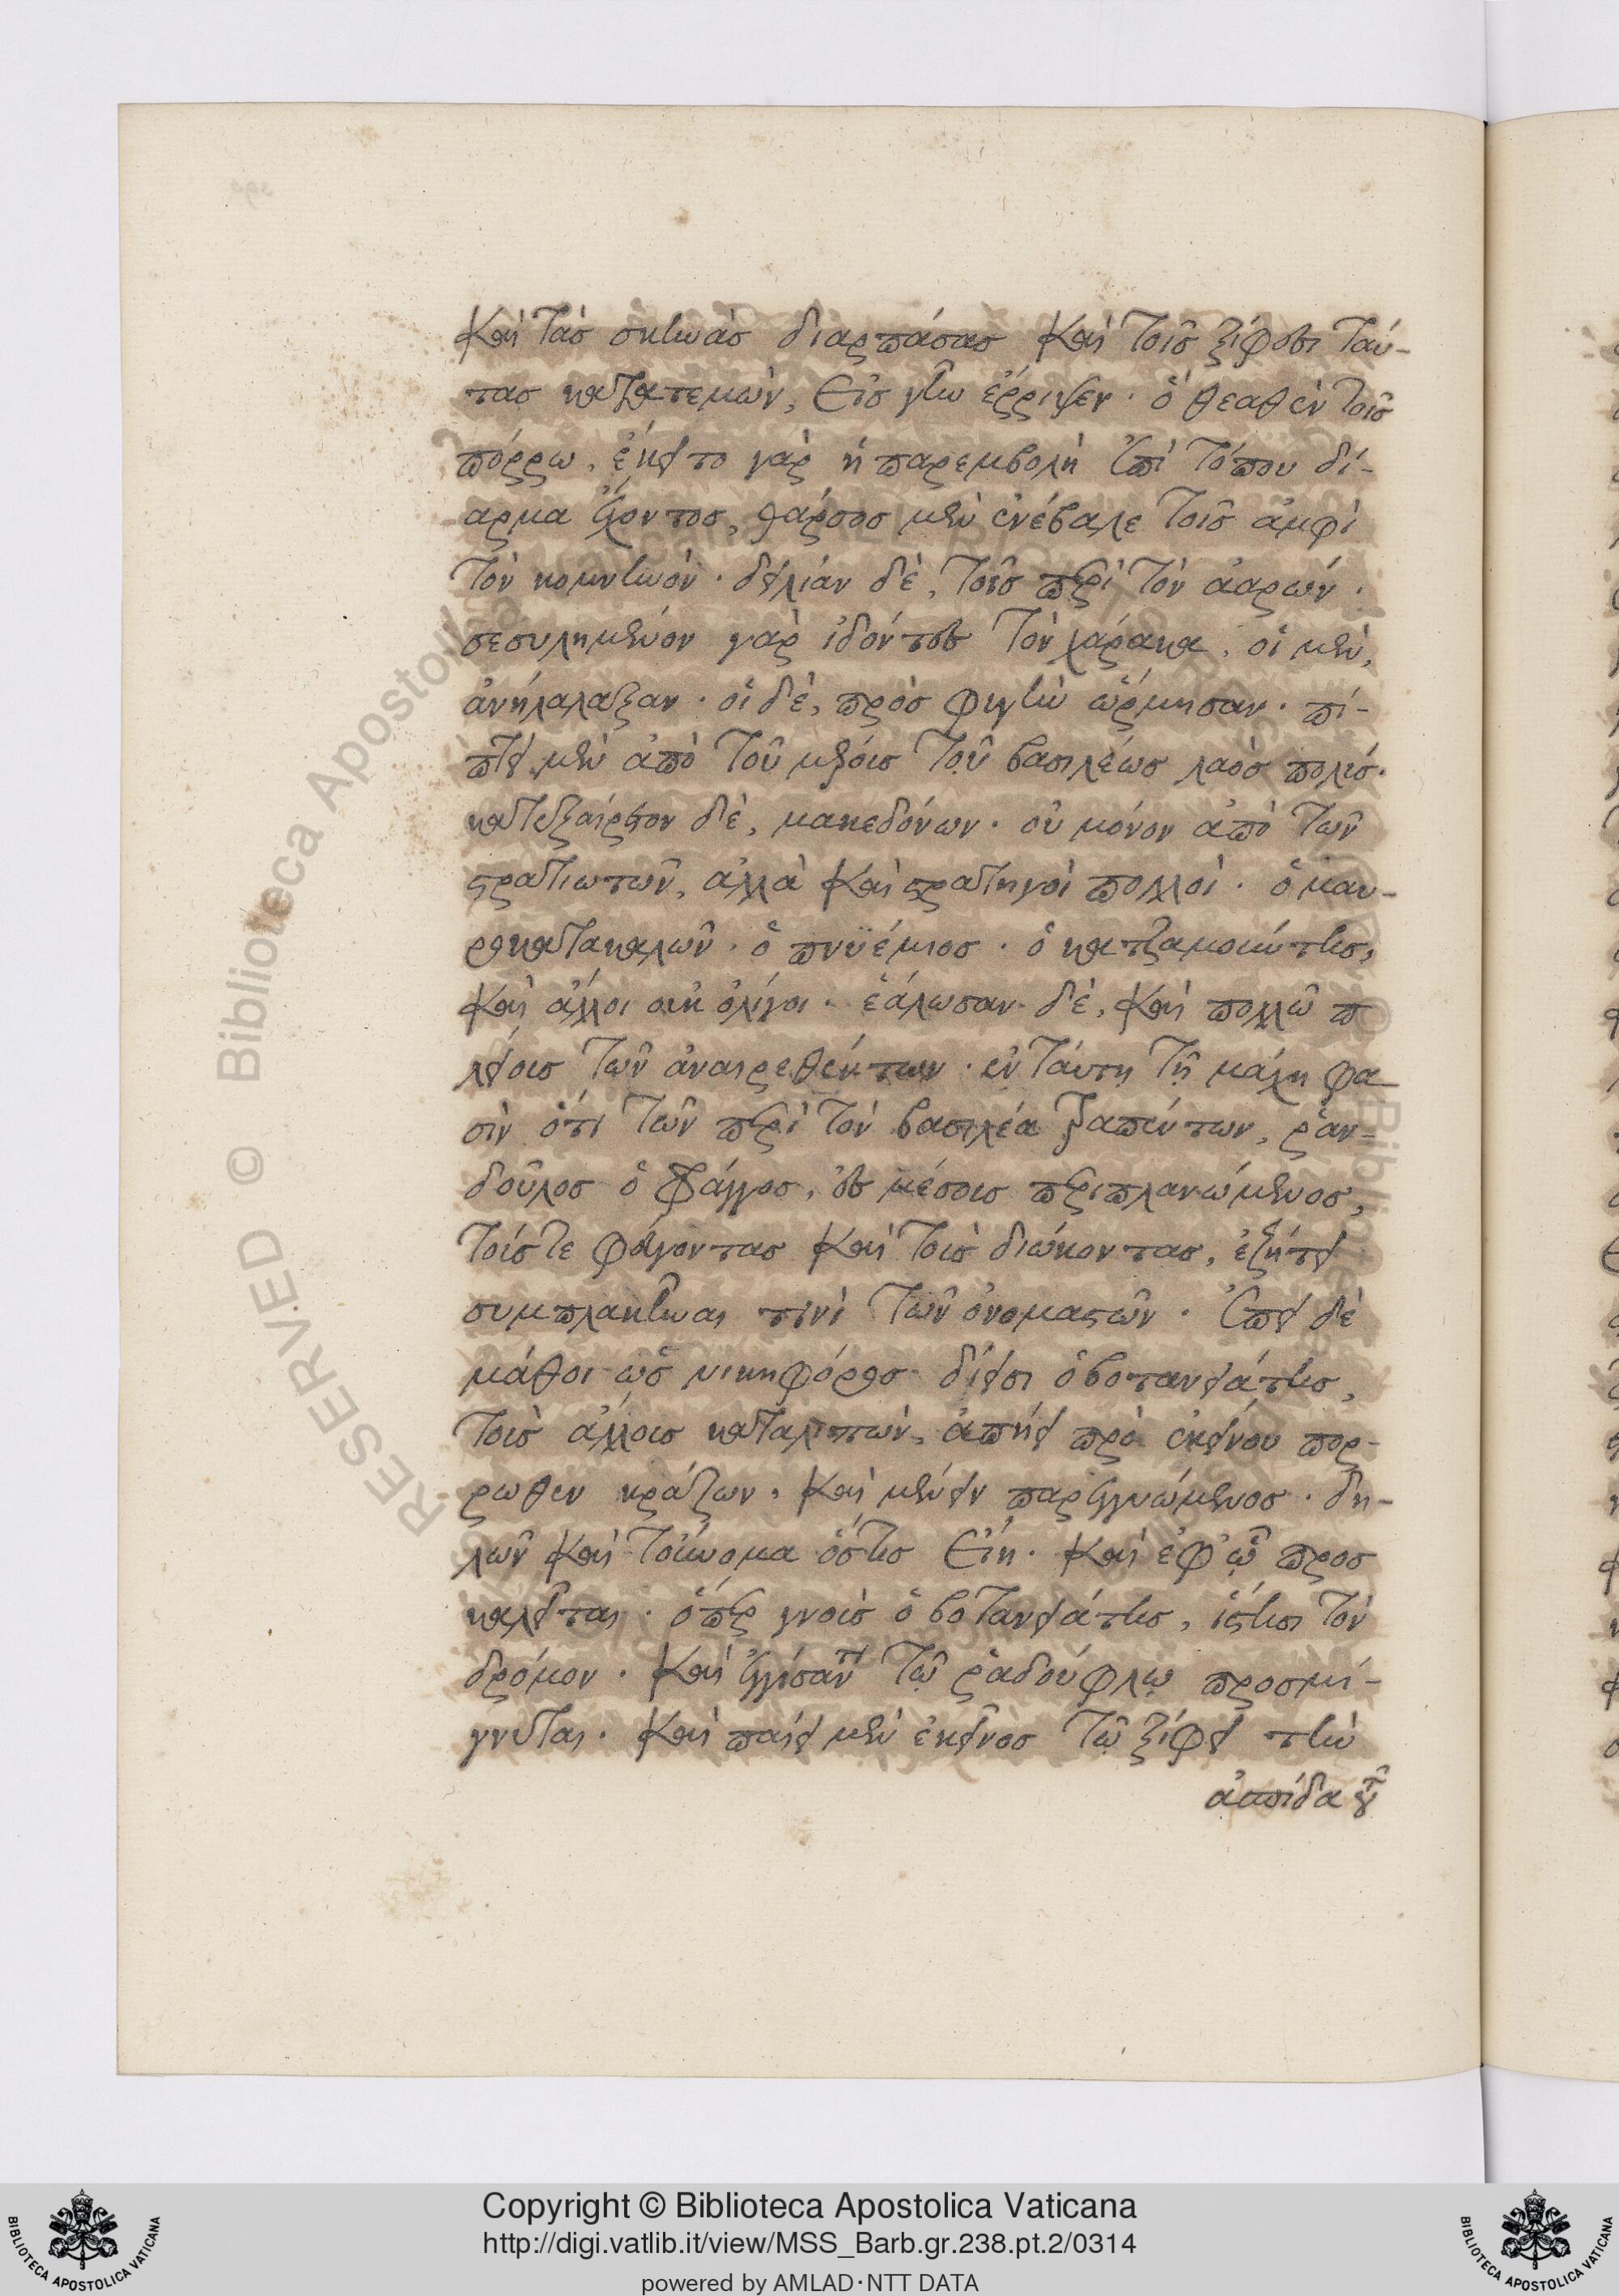 καὶ τὰς σκηνὰς διαρπάσας καὶ τοῖς ξίφεσι ταύ-
τας κατατεμὼν, εἰς γῆν ἔρριψεν · ὃ θεαθὲν τοῖς
πόρρω, ἔκειτο γὰρ ἡ παρεμβολὴ ἐπὶ τόπου δί-
αρμα ἔχοντος, θάρσος μὲν ἐνέβαλε τοῖς ἀμφὶ
τὸν κομνηνόν · δειλίαν δὲ, τοῖς περὶ τὸν ἀαρών ·
σεσυλημένον γὰρ ἰδόντες τὸν χάρακα, οἱ μὲν,
ἀνηλάλαξαν · οἱ δὲ, πρὸς φυγὴν ὥρμησαν · πί-
πτει μὲν ἀπὸ τοῦ μέρους τοῦ βασιλέως λαὸς πολύς ·
κατεξαίρετον δὲ, μακεδόνων · οὐ μόνον ἀπὸ τῶν
στρατιωτῶν, ἀλλὰ καὶ στρατηγοὶ πολλοί · ὁ μαυ-
ροκατακαλῶν · ὁ πνυέμιος · ὁ κατζαμούντης,
καὶ ἄλλοι οὐκ ὀλίγοι · ἑάλωσαν δὲ, καὶ πολλῶ π
λείους τῶν ἀναιρεθέντων · ἐν ταύτῃ τῇ μάχῃ φα
σὶν ὅτι τῶν περὶ τὸν βασιλέα τραπέντων, ῥαν-
δοῦλος ὁ φράγγος, ἐν μέσοις περιπλανώμενος,
τούς τε φεύγοντας καὶ τοὺς διώκοντας, ἐζήτει
συμπλακῆναι τινὶ τῶν ὀνομαστῶν · ἐπεὶ δὲ
μάθοι ὡς νικηφόρος δίεισι ὁ βοτανειάτης,
τοὺς ἄλλους καταλιπὼν, ἀπῄει πρὸ ἐκείνου πορ-
ρωθεν κράζων, καὶ μένειν παρεγγυώμενος · δη-
λῶν καὶ τοὔνομα ὅστις εἴη · καὶ ἐφ' ᾧ προσ
καλεῖται · ὅπερ γνοὺς ὁ βοτανειάτης, ἵστησι τὸν
δρόμον · καὶ ἐγγίσαντι τῷ ῥαδούφλῳ προσμί-
γνυται · καὶ παίει μὲν ἐκεῖνος τῷ ξίφει τὴν
ἀσπίδα τοῦ